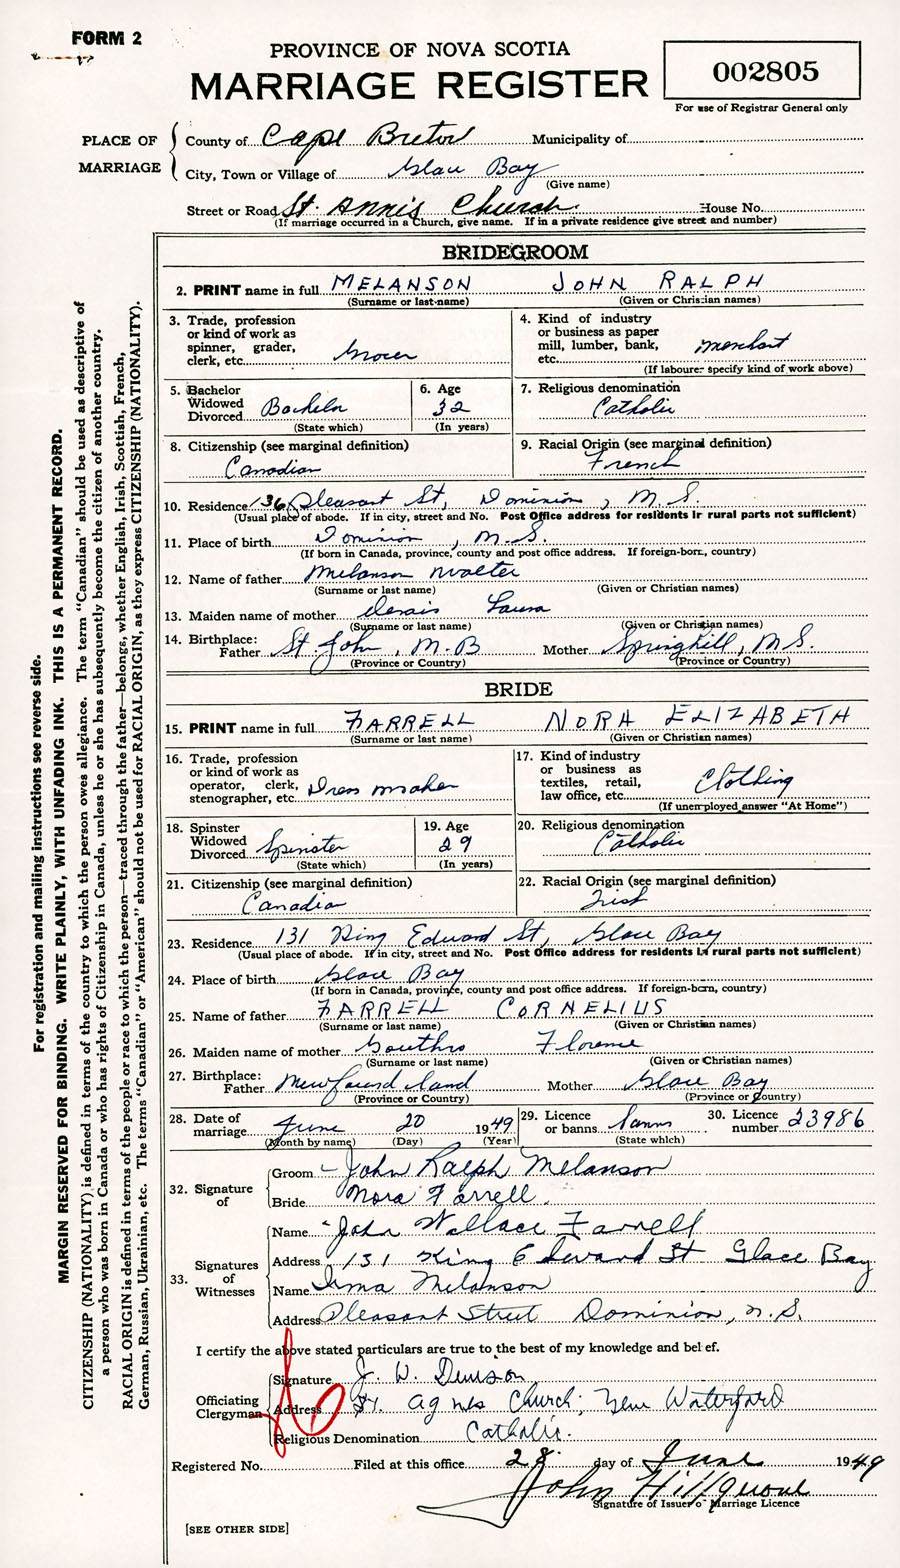 FORM 2
PROVINCE OF NOVA SCOTIA
MARRIAGE REGISTER
002805
For use of Registrar General only
PLACE OF MARRIAGE
County of Cape Breton Municipality of
City, Town or Village of Glace Bay
(Give name)
Street or Road St. Annis Church. House No.
(If marriage occurred in a Church, give name. If in a private residence give street and number)
BRIDEGROOM
2. PRINT name in full MELANSON JOHN RALPH
(Surname or last name) (Given or Christian names)
3. Trade, profession or kind of work as spinner, grader, clerk, etc. Grocer
4. Kind of industry or business as paper mill, lumber, bank, etc. Merchant
(If labourer specify kind of work above)
5. Bachelor Widowed Divorced Bachelor
(State which)
6. Age 32
(In years)
7. Religious denomination
Catholic
8. Citizenship (see marginal definition)
Canadian
9. Racial Origin (see marginal definition)
French
10. Residence 136 Pleasant St, Dominion, N.S.
(Usual place of abode. If in city, street and No. Post Office address for residents in rural parts not sufficient)
11. Place of birth Dominion, N.S.
(If born in Canada, province, county and post office address. If foreign-born, country)
12. Name of father Melanson Walter
(Surname or last name) (Given or Christian names)
13. Maiden name of mother Laura
(Surname or last name) (Given or Christian names)
14. Birthplace:
Father St John, N.B Mother Springhill, N.S.
(Province or Country) (Province or Country)
BRIDE
15. PRINT name in full FARRELL NORA ELIZABETH
(Surname or last name) (Given or Christian names)
16. Trade, profession or kind of work as operator, clerk, stenographer, etc. Dress maker
17. Kind of industry or business as textiles, retail, law office, etc. Clothing
(If unemployed answer "At Home")
18. Spinster Widowed Divorced Spinster
(State which)
19. Age 29
(In years)
20. Religious denomination
Catholic
21. Citizenship (see marginal definition)
Canadian
22. Racial Origin (see marginal definition)
Irish
23. Residence 131 King Edward St, Glace Bay
(Usual place of abode. If in city, street and No. Post Office address for residents in rural parts not sufficient)
24. Place of birth Glace Bay
(If born in Canada, province, county and post office address. If foreign-born, country)
25. Name of father FARRELL CORNELIUS
(Surname or last name) (Given or Christian names)
26. Maiden name of mother Florence
(Surname or last name) (Given or Christian names)
27. Birthplace:
Father Newfoundland Mother Glace Bay
(Province or Country) (Province or Country)
28. Date of marriage June 20 1949
(Month by name) (Day) (Year)
29. Licence or banns Banns
(State which)
30. Licence number 23986
32. Signature of
Groom John Ralph Melanson
Bride Nora Farrell.
33. Signatures of Witnesses
Name John Wallace Farrell
Address 131 King Edward St Glace Bay
Name Irma Melanson
Address Pleasant Street Dominion, N.S.
I certify the above stated particulars are true to the best of my knowledge and belief.
Officiating Clergyman
Signature J. W.
Address St. Agnes Church, New Waterford
Religious Denomination Catholic.
Registered No. Filed at this office 28. day of June 1949
John
Signature of Issuer of Marriage Licence
[SEE OTHER SIDE]
For registration and mailing instructions see reverse side.
MARGIN RESERVED FOR BINDING. WRITE PLAINLY, WITH UNFADING INK. THIS IS A PERMANENT RECORD.
CITIZENSHIP (NATIONALITY) is defined in terms of the country to which the person owes allegiance. The term "Canadian" should be used as descriptive of
a person who was born in Canada or who has rights of Citizenship in Canada, unless he or she has subsequently become the citizen of another country.
RACIAL ORIGIN is defined in terms of the people or race to which the person—traced through the father—belongs, whether English, Irish, Scottish, French,
German, Russian, Ukrainian, etc. The terms "Canadian" or "American" should not be used for RACIAL ORIGIN, as they express CITIZENSHIP (NATIONALITY).